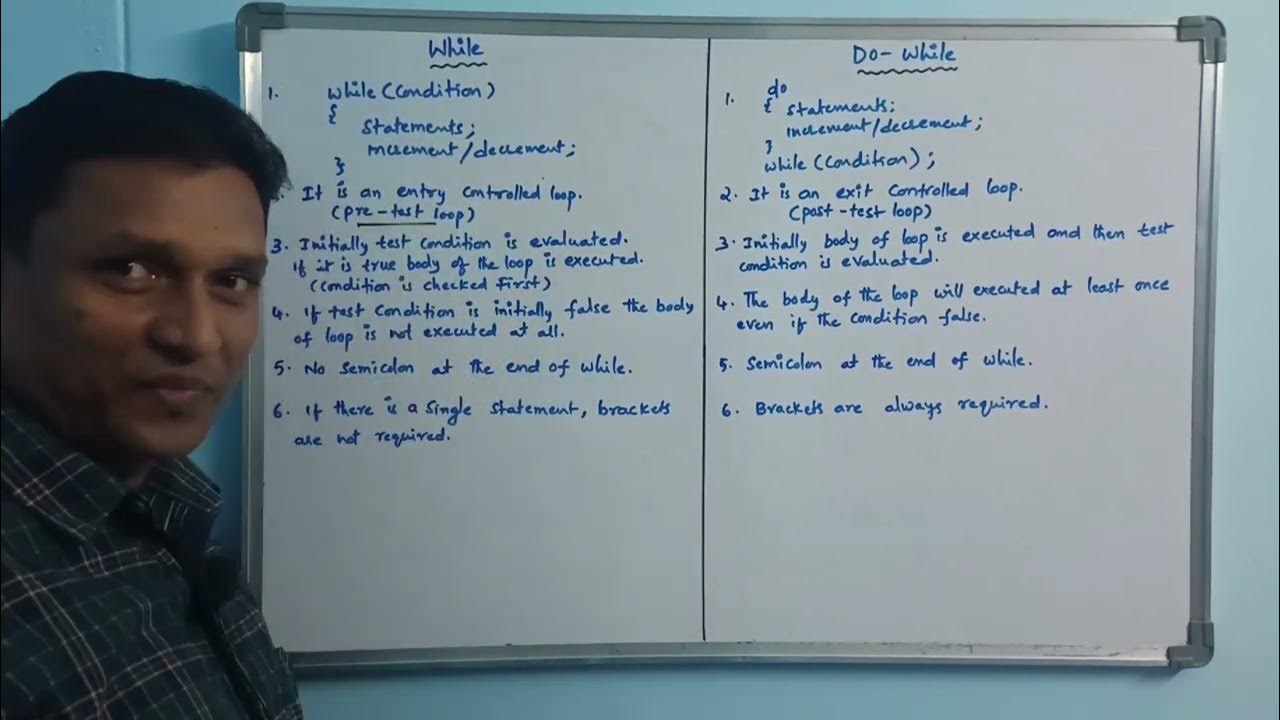 While
1. while (Condition)
{
Statements;
increment/decrement;
}
. It is an entry controlled loop.
(pre-test loop)
3. Initially test condition is evaluated.
if it is true body of the loop is executed.
(Condition is checked first)
4. If test condition is initially false the body
of loop is not executed at all.
5. No semicolon at the end of while.
6. If there is a single statement, brackets
are not required.
Do-While
1. do
{ statements;
increment/decrement;
}
while (condition);
2. It is an exit controlled loop.
(post-test loop)
3. Initially body of loop is executed and then test
condition is evaluated.
4. The body of the loop will executed at least once
even if the condition false.
5. Semicolon at the end of while.
6. Brackets are always required.